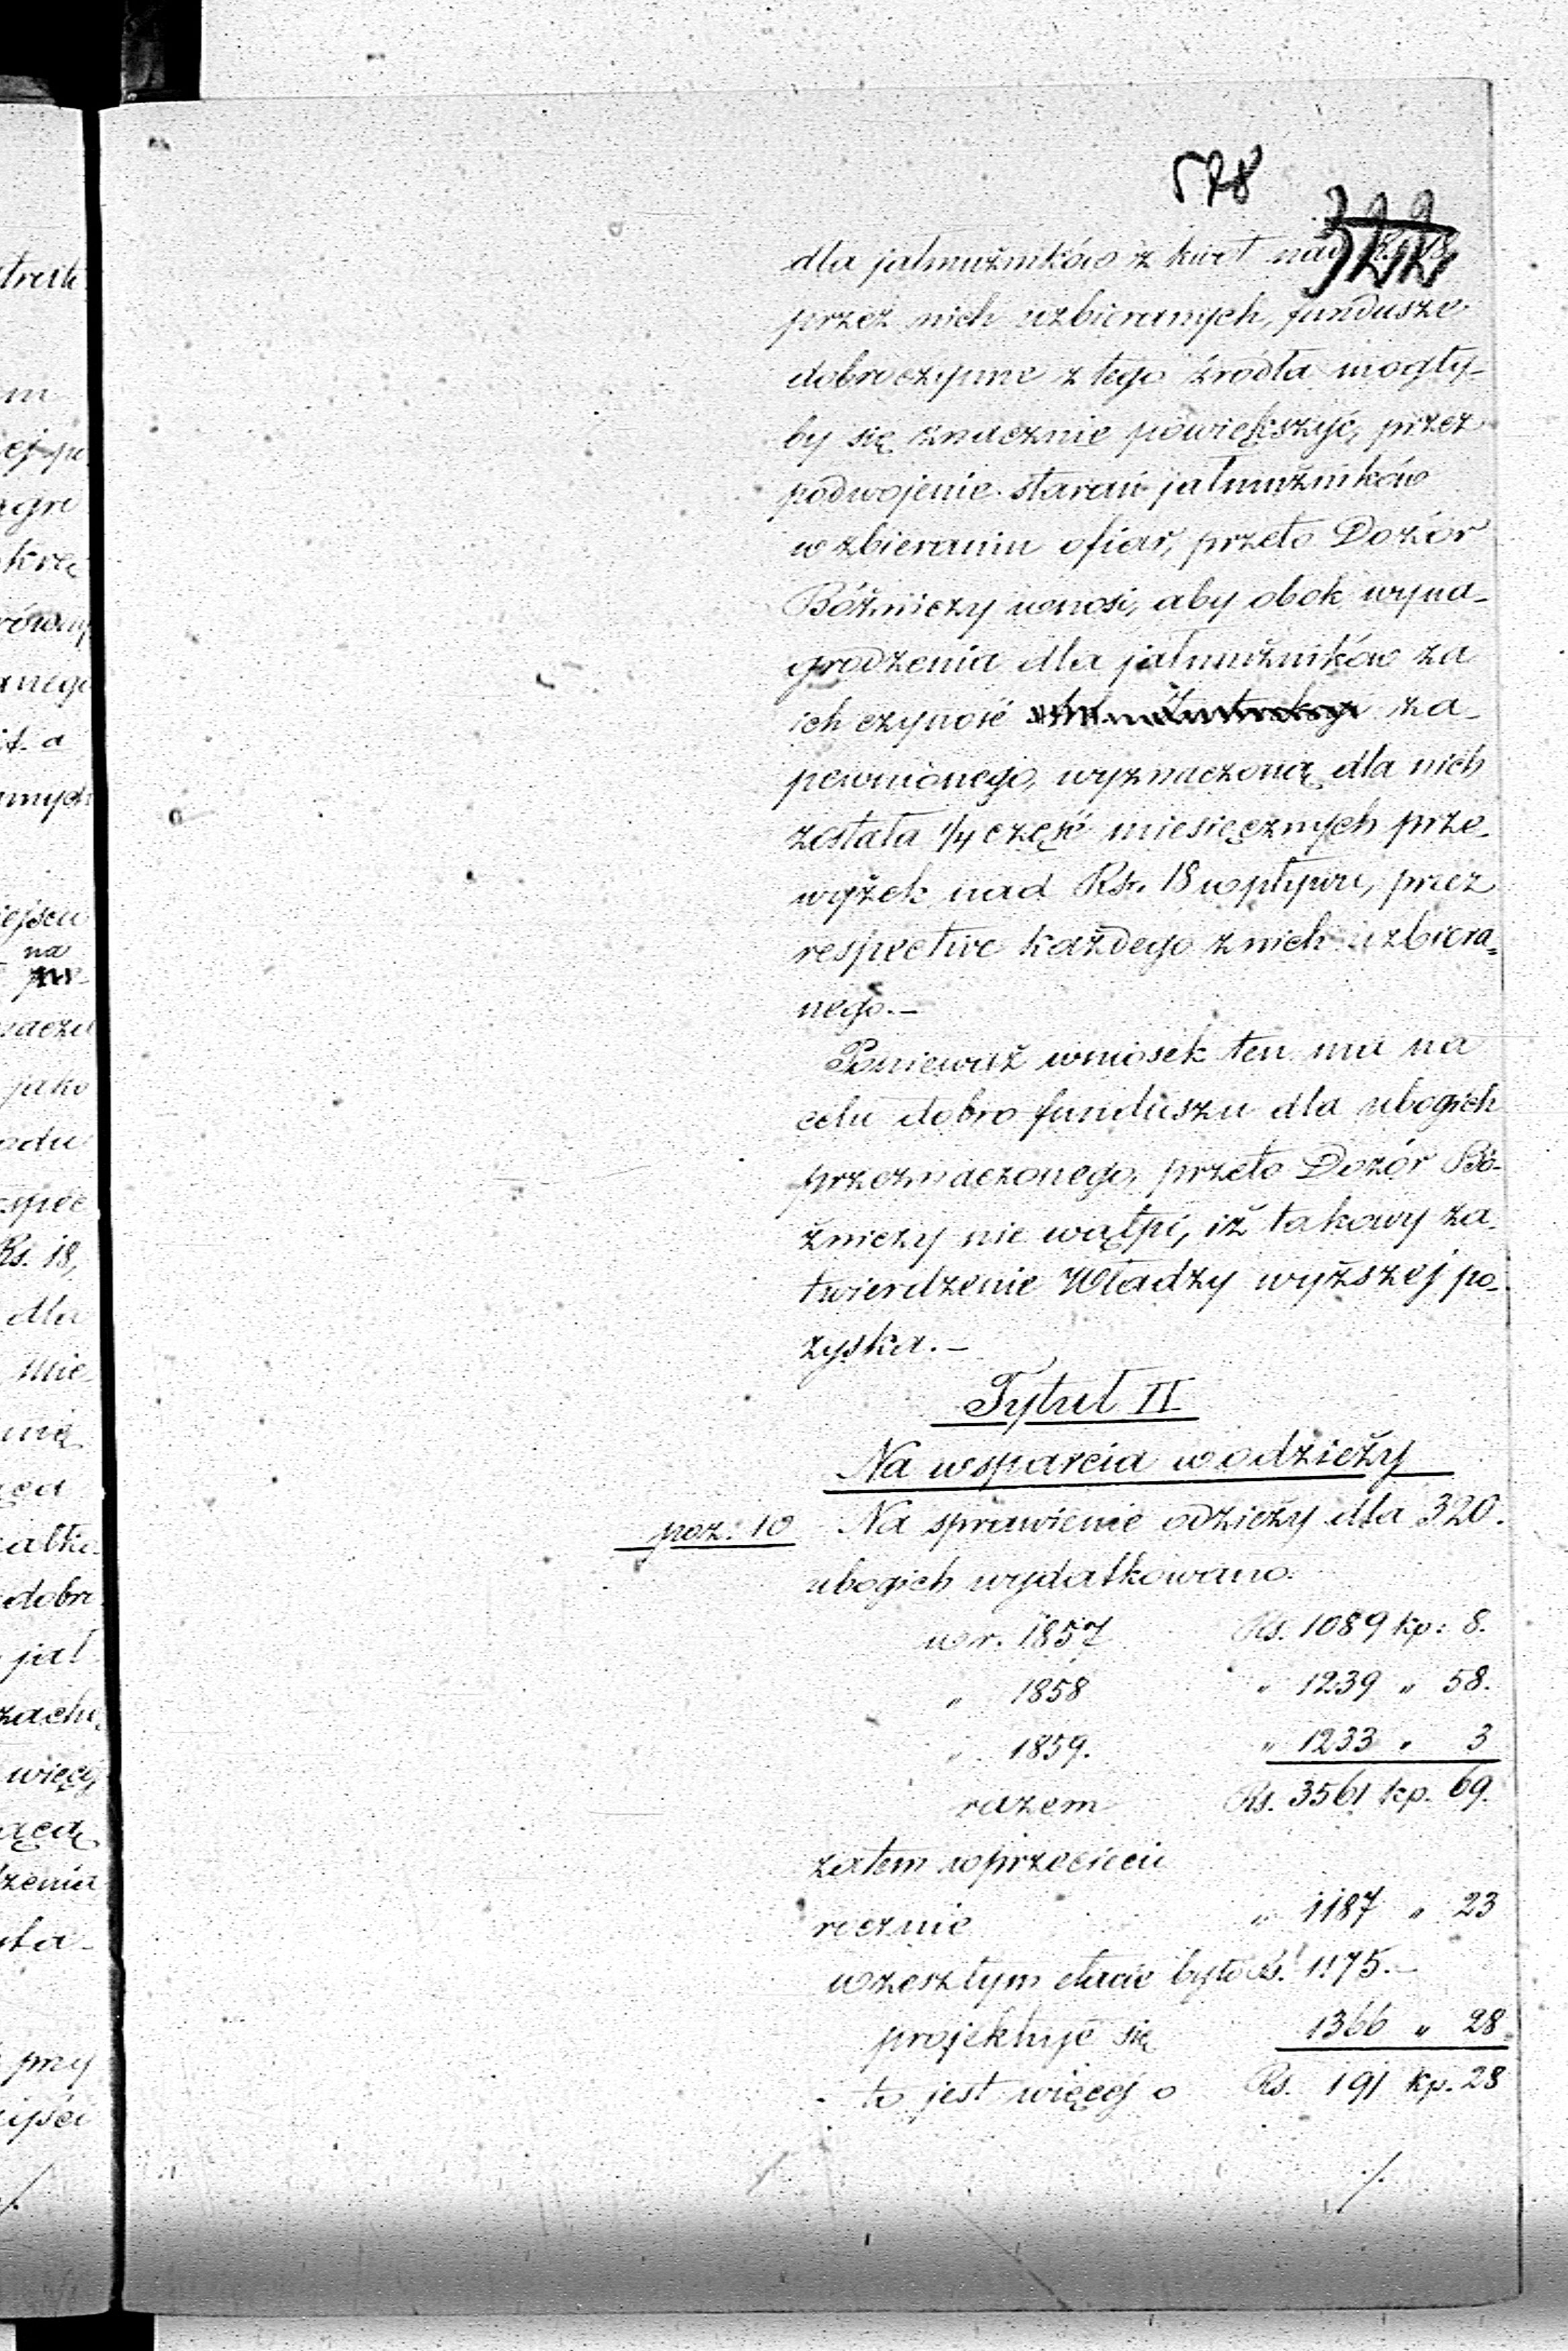 528
322
dla jałmużników z kwot nad
przez nich uzbieranych, fundusze
dobroczynne z tego źródła mogły-
by się znacznie powiększyć, przez
podwojenie starań jałmużników
w zbieraniu ofiar, przeto Dozór
Bóżniczy wnosi, aby obok wyna-
grodzenia dla jałmużników za
ich czyność za-
pewnionego, wyznaczoną dla nich
została 1/4 część miesięcznych prze-
wyżek nad Rsr. 18 wpływu, przez
respective każdego z nich uzbiera-
nego.-
Ponieważ wniosek ten ma na
celu dobro funduszu dla ubogich
przeznaczonego, przeto Dozór Bó-
żniczy nie wątpi, iż takowy za-
twierdzenie Władzy wyższej po-
zyska.-
Tytuł II
Na wsparcia w odzieży
poz. 10 Na sprawienie odzieży dla 320.
ubogich wydatkowano.
w r. 1857 Rs. 1089 kp: 8.
" 1858 " 1239 " 58.
" 1859. " 1233 " 3
razem Rs. 3561 kp. 69.
zatem w przecięciu
rocznie " 1187 " 23
w zeszłym etacie było Rs. 1175.-
projektuje się 1366 " 28.
to jest więcej o Rs. 191 kp. 28
./.